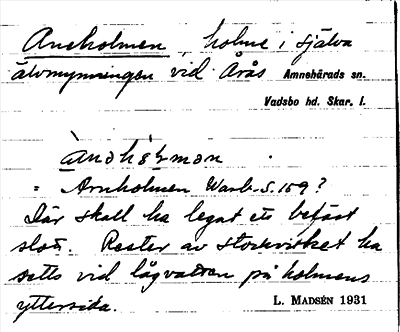 Aneholmen, holme i själva
älvmynningen vid Årås Amnehärads sn.
Vadsbo hd. Skar. l.
= Arnholmen Warb. S. 159?
Där skall ha legat ett befäst
slott. Rester av stockvirket ha
setts vid lågvatten på holmens
yttersida. L. MADSÉN 1931